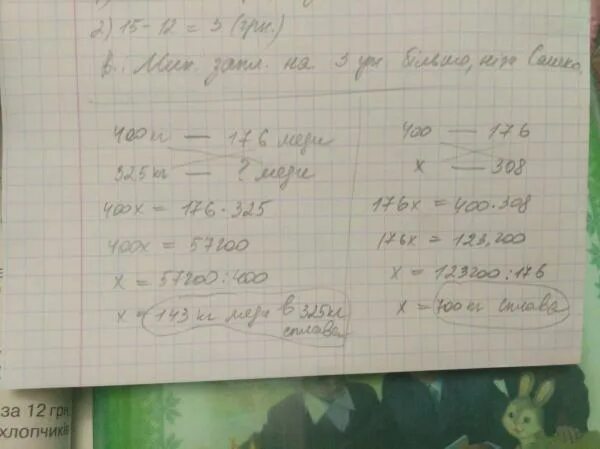 2) 15 - 12 = 3 (грн.)
В.: Мих. запл. на 3 грн більше, ніж Сашко.
400 кг — 176 меди
325 кг — ? меди
400x = 176 · 325
400x = 57200
x = 57200 : 400
x = 143 кг меди в 325 кг
сплава
400 — 176
x — 308
176x = 400 · 308
176x = 123.200
x = 123200 : 176
x = 700 кг сплава
за 12 грн
хлопчиків